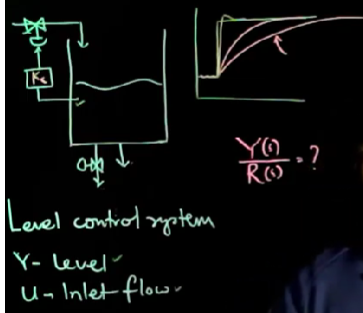 Kc
Y(s)
R(s) = ?
Level control system
Y- Level
U- Inlet flow